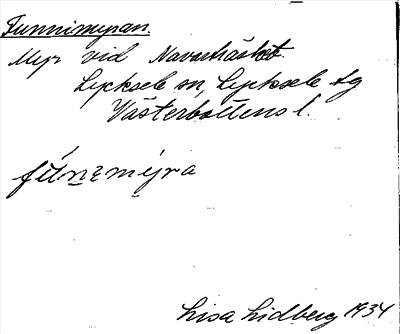 Tunnimyran.
Myr vid Navarträsket.
Lycksele sn, Lycksele tg
Västerbottens l.
Lisa Lidberg 1934